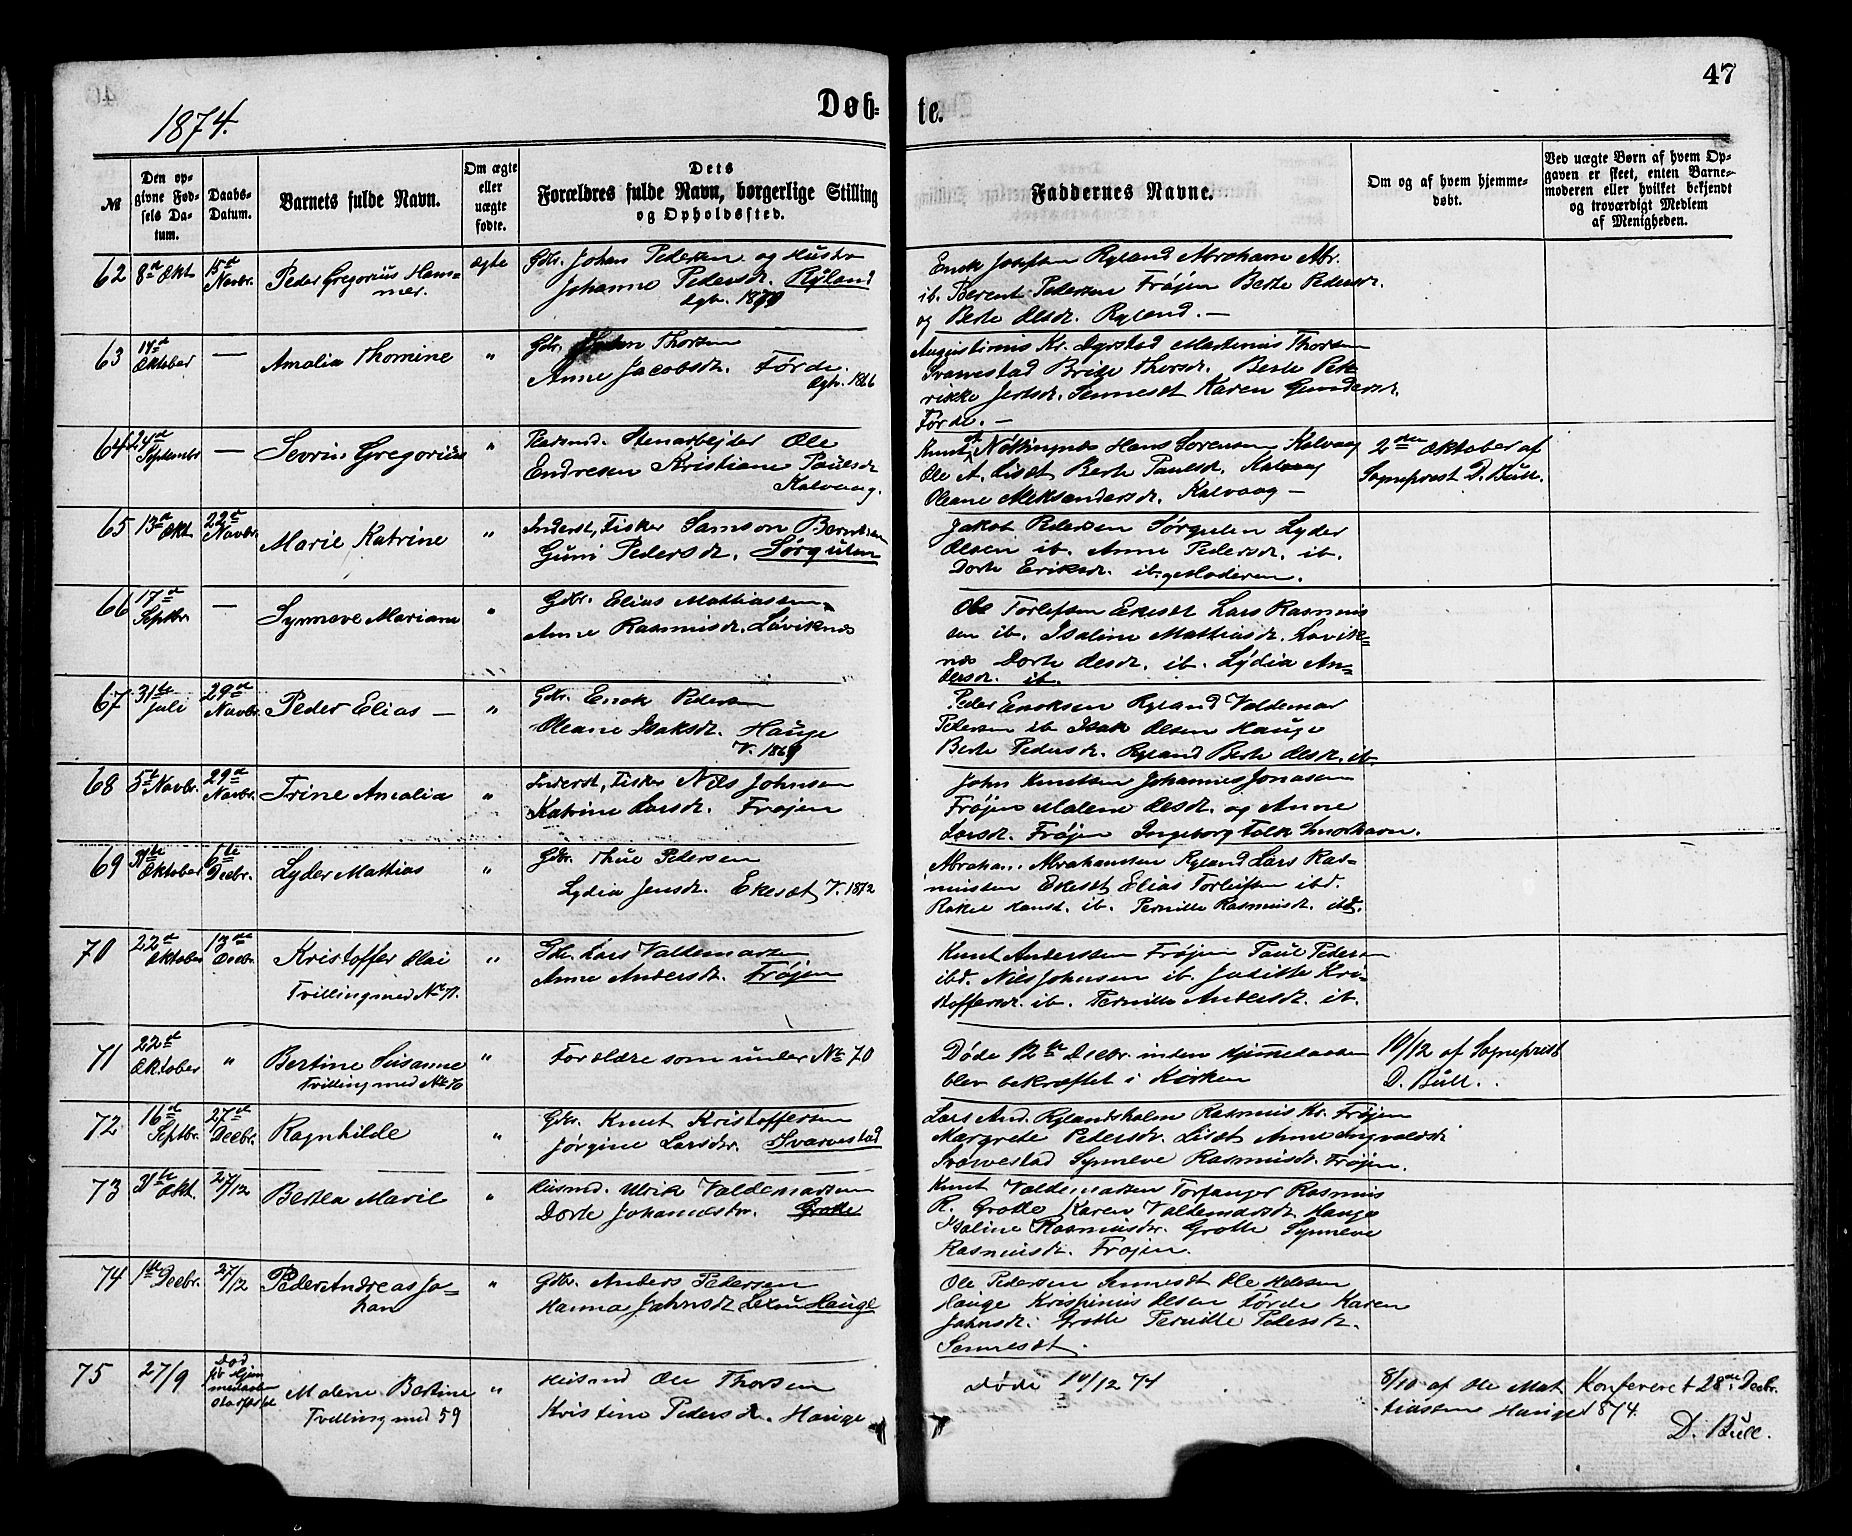 47
1874.
Døb-
te.
№
Den op-
givne Fød-
sels Da-
tum.
Daabs-
Datum.
Barnets fulde Navn.
Om ægte
eller
uægte
fødte.
Dets
Forældres fulde Navn, borgerlige Stilling
og Opholdssted.
Faddernes Navne.
Om og af hvem hjemme-
døbt.
Ved uægte Børn af hvem Op-
gaven er skeet, enten Barne-
moderen eller hvilket bekjendt
og troværdigt Medlem
af Menigheden.
62 8de Okt 15de Novbr. Peder Gregorius Ham-
mer.
ægte
Gdr. Johan Pedersen og Hustr
Johanne Pedersdr. Ryland
Enok Josefsen Ryland Abraham Abr.
ib. Berent Pedersen Frøjen Berte Pedersdr.
og Berte Olesdr. Ryland. —
63 14de Oktober — Amalia Thomine "
Gdr. Thorsen
Anne Jacobsdr. Førde.
Cgtv. 1866
Augustinus Kr. Dyrstad Martinus Thorsen
Svarvestad Brite Thorsdr. Berte Pet
rikke Jertsdr. Sennesæt Karen Gundersdr.
Førde. —
64 24de Septembr — Sevrin Gregorius "
Pladsmd. Stenarbejder Ole
Endresen Kristiane Paulsdr
Kalvaag.
Hans Sørensen Kalvaag
Ole A. Lisæt Berte Paulsdr. Kalvaag
Oleane Aleksandersdr. Kalvaag —
2den Oktober af
Sogneprest D. Bull.
65 13de Okt 22de Novbr. Marie Katrine "
Inderst, Fisker Samson Berntsen
Guni Pedersdr. Sørgulen
Jakob Pedersen Sørgulen Lyder
Olsen ib. Anne Pedersdr. ib.
Dorte Eriksdr. ib. og Moderen.
66 17de Septbr. — Synneve Mariane "
Gdbr. Elias Mathiassen
Anne Rasmusdr. Løviknæs
Ole Torleifsen Ekesæt Lars Rasmus
sen ib. Isaline Mathiasdr. Løvik=
næs Dorte Olesdr. ib. Lydia An=
dersdr. ib.
67 31te Juli 29de Novbr. Peder Elias — "
Gdr. Enok Pedersen
Oleane Isaksdr. Hauge
V. 1869
Peder Enoksen Ryland Valdemar
Petersen ib Isak Olsen Hauge
Berte Pedersdr. Ryland Berte Olesdr. ib
68 5te Novbr. 29de Novbr. Trine Amalia "
Inderst, Fisker Nils Johnsen
Katrine Larsdr. Frøjen
John Knutsen Johannes Jonasen
Frøjen Malene Olesdr. og Anne
Larsdr. Frøjen Ingeborg Falk Smørhavn.
69 31te Oktober 6te Decbr. Lyder Mathias "
Gdr. Thue Pedersen
Lydia Jensdr. Ekesæt V. 1872
Abraham Abrahamsen Ryland Lars Ras=
mussen Ekesæt Elias Torleifsen ibd.
Rakel Hansd. ib. Pernille Rasmusdr. ibd.
70 22de Oktober 13de Decbr. Kristoffer Olai
Tvilling med № 71.
"
Gdr. Lars Valdemarsen
Anne Andersdr. Frøjen
Knut Anderssen Frøjen Paul Pedersen
ibd. Nils Johnsen ib. Juditte Kri-
stoffersdr. ib. Pernille Andersdr. ib.
71 22de Oktober " Bertine Susanne
Tvilling med № 70
"
Forældre som under № 70
Døde 12te Decbr. inden Hjemmedaaben
blev bekræftet i Kirken
10/12 af Sogneprest
D. Bull.
72 16de Septbr. 27de Decbr. Ragnhilde "
Gdr. Knut Kristoffersen
Jørgine Larsdr. Svarvestad
Lars And. Rylandsholm Rasmus Kr. Frøjen
Margrete Pedersdr. Lisæt Anne Ingvaldsdr
Svarvestad Synneve Rasmusdr. Frøjen.
73 31te Okt. 27/12 Bertea Marie "
Husmd. Ulrik Valdemarsen
Dorte Johannesdr. Grotle
Knut Valdemarsen Torfanger Rasmus
R. Grotle Karen Valdemarsdr. Hauge
Isaline Rasmusdr. Grotle Synneve
Rasmusdr. Frøjen.
74 1ste Decbr. 27/12 Peder Andreas Jo-
han
"
Gdr. Anders Pedersen
Hanna Jahnsdr Lexeu Hauge
Ole Pedersen Sennesæt Ole Helesen
Hauge Krispinus Olsen Førde Karen
Jahnsdr. Grotle Pernille Pedersdr.
Sennesæt.
75 27/9 Død
før Hjem
medaaben
Malene Bertine
Tvilling med 59
"
Husmd Ole Thorsen
Kristine Pedersdr. Hauge
Døde 10/12 74
8/10 af Ole Mat
tiassen Hauge
Konfereret 28de Decbr.
1874.
D. Bull.